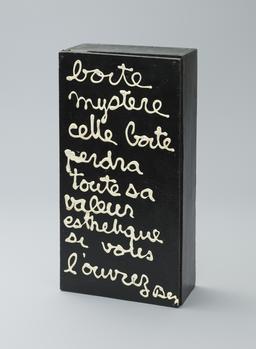 boite
mystere
cette boite
perdra
toute sa
valeur
esthetique
si vous
l'ouvrez Ben